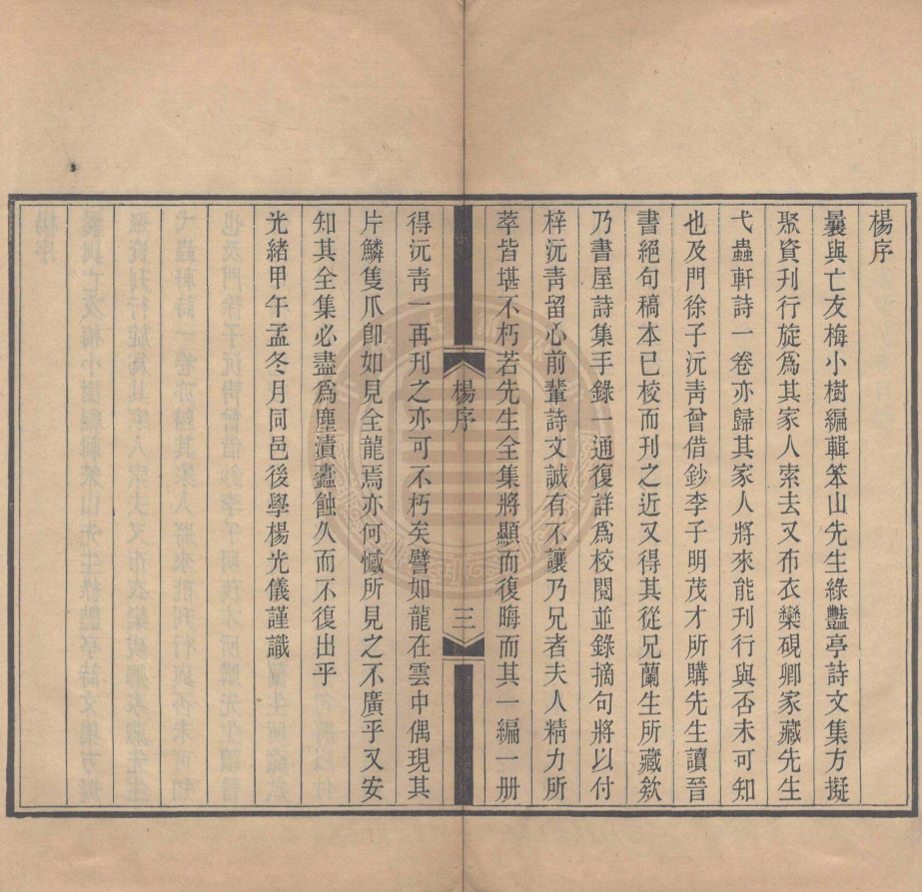 楊序
曩與亡友梅小樹編輯笨山先生綠豔亭詩文集方擬
聚資刊行旋爲其家人索去又布衣欒硯卿家藏先生
弋蟲軒詩一卷亦歸其家人將來能刊行與否未可知
也及門徐子沅靑曾借鈔李子明茂才所購先生讀晉
書絕句稿本已校而刊之近又得其從兄蘭生所藏欸
乃書屋詩集手錄一通復詳爲校閱並錄摘句將以付
梓沅靑留心前輩詩文誠有不讓乃兄者夫人精力所
萃皆堪不朽若先生全集將顯而復晦而其一編一册
楊序
三
得沅靑一再刊之亦可不朽矣譬如龍在雲中偶現其
片鱗隻爪卽如見全龍焉亦何憾所見之不廣乎又安
知其全集必盡爲塵漬蠹蝕久而不復出乎
光緒甲午孟冬月同邑後學楊光儀謹識